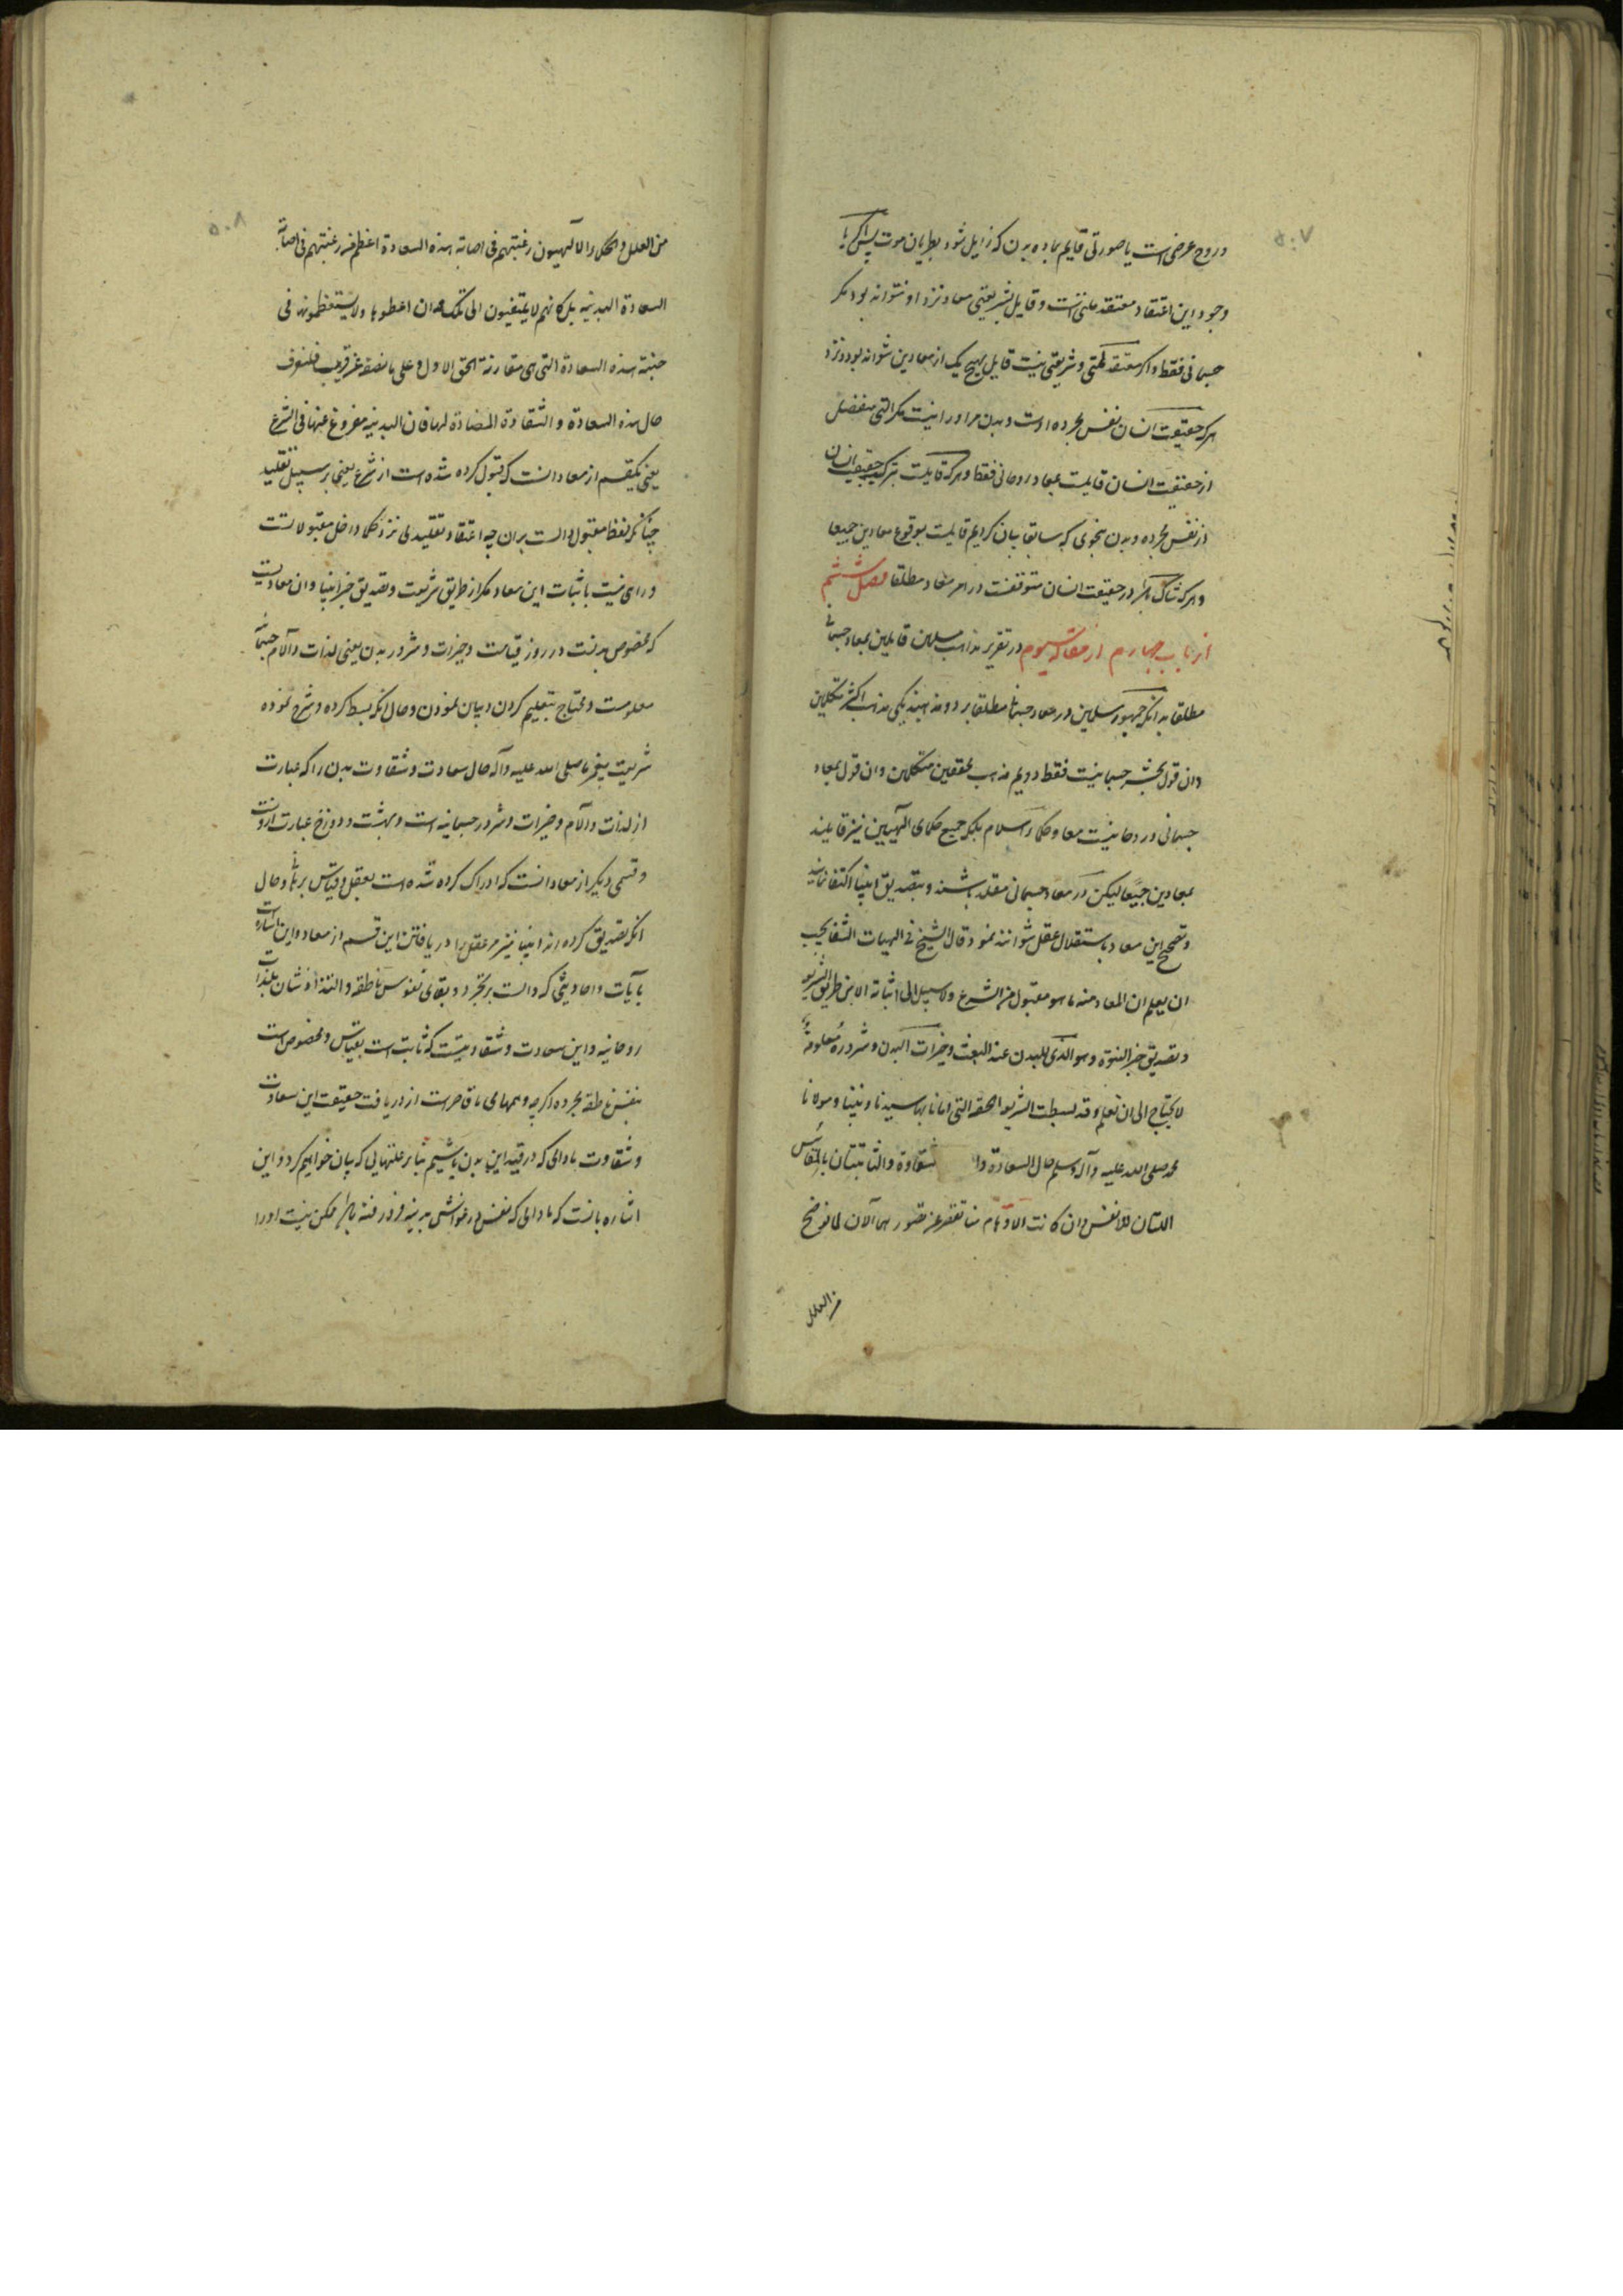 ۵۰۷
و روح عرضی است یا صورتی قایم بماده بدن که زایل شود بطریان موت پس اگر با
وجود این اعتقاد معتقد ملتی است و قایل بشریعتی معاد نزد او نتواند بود مگر
جسمانی فقط و اگر معتقد ملتی و شریعتی نیست قایل بهیچ یک از معادین نتواند بود و نزد
هرکه حقیقت انسان نفس مجرده است و بدن مر او را نیست مگر التی منفصل
از حقیقت انسان قایلست بمعاد روحانی فقط و هرکه قایلست بترکیب حقیقت انسان
از نفس مجرده و بدن بنحوی که سابقا بیان کردیم قایلست بوقوع معادین جمیعا
و هرکه شاک باشد در حقیقت انسان متوقفست در امر معاد مطلقا فصل ششم
از باب چهارم از مقاله سیوم در تقریر مذاهب مسلمین قایلین بمعاد جسمانی
مطلقا بدانکه جمهور مسلمین در معاد جسمانی مطلقا بر دو مذهبند یکی مذهب اکثر متکلمین
و ان قول بحشر جسمانیست فقط دویم مذهب محققین متکلمین و ان قول بمعاد
جسمانی و روحانیست معا و حکماء اسلام بلکه جمیع حکمای الهیین نیز قایلند
بمعادین جمیعا لیکن در معاد جسمانی مقلد باشند و بتصدیق انبیا اکتفا نمایند
و تصحیح این معاد باستقلال عقل نتوانند نمود قال الشیخ فی الهیات الشفا یجب
ان یعلم ان المعاد منه ما هو مقبول من الشرع ولا سبیل الی اثباته الا من طریق الشریعة
و تصدیق خبر النبوة و هو الذی للبدن عند البعث و خیرات البدن و شروره معلومة
لا یحتاج الی ان تعلم و قد بسطت الشریعة الحقة التی اتانا بها سیدنا و نبینا و مولانا
محمد صلی الله علیه وآله وسلم حال السعادة وا شقاوة والثابتتان بالمقاییس
اللتان للانفس وان کانت الاوهام منا تقصر عن تصورهما الان لما نوضح
من العلل
۵۰۸
من العلل والحکماء الالهیون رغبتهم فی اصابة هذه السعادة اعظم من رغبتهم فی اصابة
السعادة البدنیه بل کانهم لا یلتفتون الی تلک وان اعطوها ولا یستعظمونها فی
جنبة هذه السعادة التی هی مقارنة الحق الاول وعلی ما نصفه عن قریب فلنعرف
حال هذه السعادة والشقاوة المضادة لها فان البدنیه مفروغ عنها فی الشرع
یعنی یکقسم از معاد انست که قبول کرده شده است از شرع یعنی بر سبیل تقلید
چنانکه لفظ مقبول دالست بران چه اعتقاد تقلیدی نزد حکما داخل مقبولاتست
و راهی نیست باثبات این معاد مگر از طریق شریعت و تصدیق خبر انبیا و ان معادیست
که مخصوص بدنست در روز قیامت و خیرات و شرور بدن یعنی لذات و آلام جسمانی
معلومست و محتاج بتعلیم کردن و بیان نمودن و حال انکه بسط کرده و شرح نموده
شریعت پیغمبر ما صلی الله علیه وآله حال سعادت و شقاوت بدن را که عبارت
از لذات و آلام و خیرات و شرور جسمانیه است و بهشت و دوزخ عبارت ازوست
و قسمی دیگر از معاد انست که ادراک کرده شده است بعقل و قیاس برهانی و حال
انکه تصدیق کرده‌اند انبیا نیز مر عقل را در یافتن این قسم از معاد و این اشاره است
بآیات و احادیثی که دالست بر تجرد و بقای نفوس ناطقه و التذاذ شان بلذات
روحانیه و این سعادت و شقاوتیست که ثابت است بقیاس و مخصوص است
بنفس ناطقه مجرده اگرچه وهمهای ما قاصر است از دریافت حقیقت این سعادت
و شقاوت مادامی که در قید این بدن باشیم بنابر علتهایی که بیان خواهیم کرد و این
اشاره بانست که مادامی که نفس در غواشی بدنیه فرو رفته باشد ممکن نیست او را